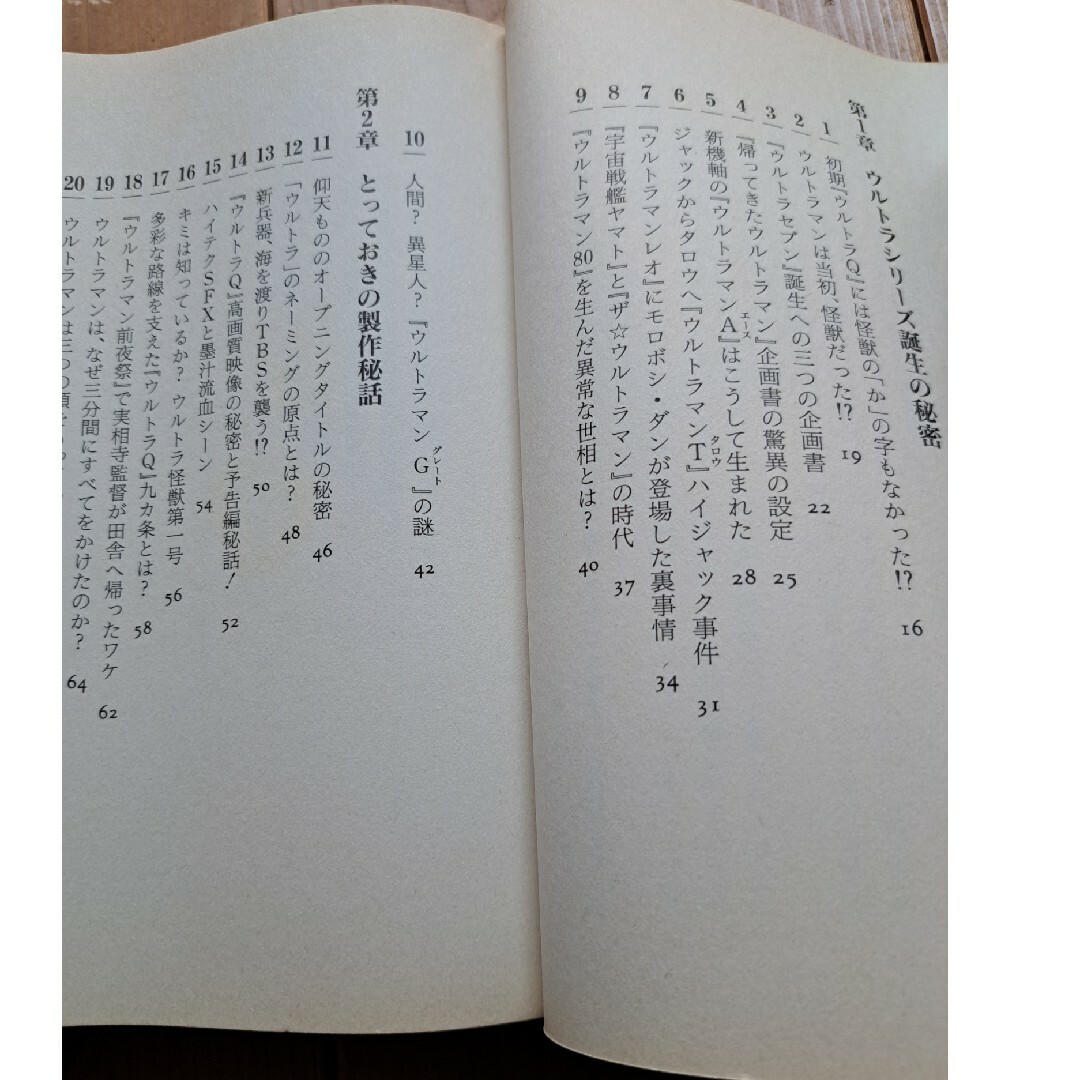 第1章 ウルトラシリーズ誕生の秘密
1 初期『ウルトラQ』には怪獣の「か」の字もなかった!? 16
2 ウルトラマンは当初、怪獣だった!? 19
3 『ウルトラセブン』誕生への三つの企画書 22
4 『帰ってきたウルトラマン』企画書の驚異の設定 25
5 新機軸の『ウルトラマンA』はこうして生まれた 28
エース
6 ジャックからタロウへ『ウルトラマンT』ハイジャック事件 31
タロウ
7 『ウルトラマンレオ』にモロボシ・ダンが登場した裏事情 34
8 『宇宙戦艦ヤマト』と『ザ☆ウルトラマン』の時代 37
9 『ウルトラマン80』を生んだ異常な世相とは? 40
10 人間? 異星人? 『ウルトラマンG』の謎 42
グレート
第2章 とっておきの製作秘話
11 仰天もののオープニングタイトルの秘密 46
12 「ウルトラ」のネーミングの原点とは? 48
13 新兵器、海を渡りTBSを襲う!? 50
14 『ウルトラQ』高画質映像の秘密と予告編秘話! 52
15 ハイテクSFXと墨汁流血シーン 54
16 キミは知っているか? ウルトラ怪獣第一号 56
17 多彩な路線を支えた『ウルトラQ』九カ条とは? 58
18 『ウルトラマン前夜祭』で実相寺監督が田舎へ帰ったワケ 62
19 ウルトラマンは、なぜ三分間にすべてをかけたのか? 64
20 ウルトラマンは三つの